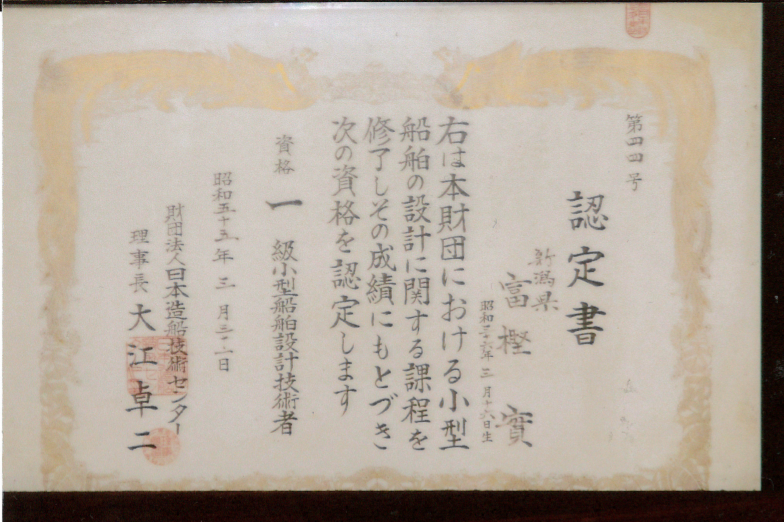 第四四号
認定書
新潟県
富樫實
昭和三十六年三月十六日生
右は本財団における小型
船舶の設計に関する課程を
修了しその成績にもとづき
次の資格を認定します
資格 一級小型船舶設計技術者
昭和五十五年三月三十一日
財団法人日本造船技術センター
理事長 大江卓二